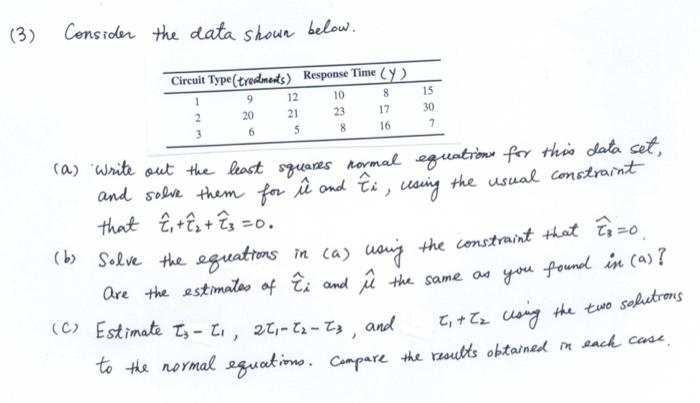 (3) Consider the data shown below.
Circuit Type (treatments) Response Time (y)
1 9 12 10 8 15
2 20 21 23 17 30
3 6 5 8 16 7
(a) Write out the least squares normal equations for this data set,
and solve them for μ̂ and τ̂i, using the usual constraint
that τ̂1+τ̂2+τ̂3=0.
(b) Solve the equations in (a) using the constraint that τ̂3=0.
Are the estimates of τ̂i and μ̂ the same as you found in (a)?
(C) Estimate τ3-τ1, 2τ1-τ2-τ3, and τ1+τ2 using the two solutions
to the normal equations. Compare the results obtained in each case.